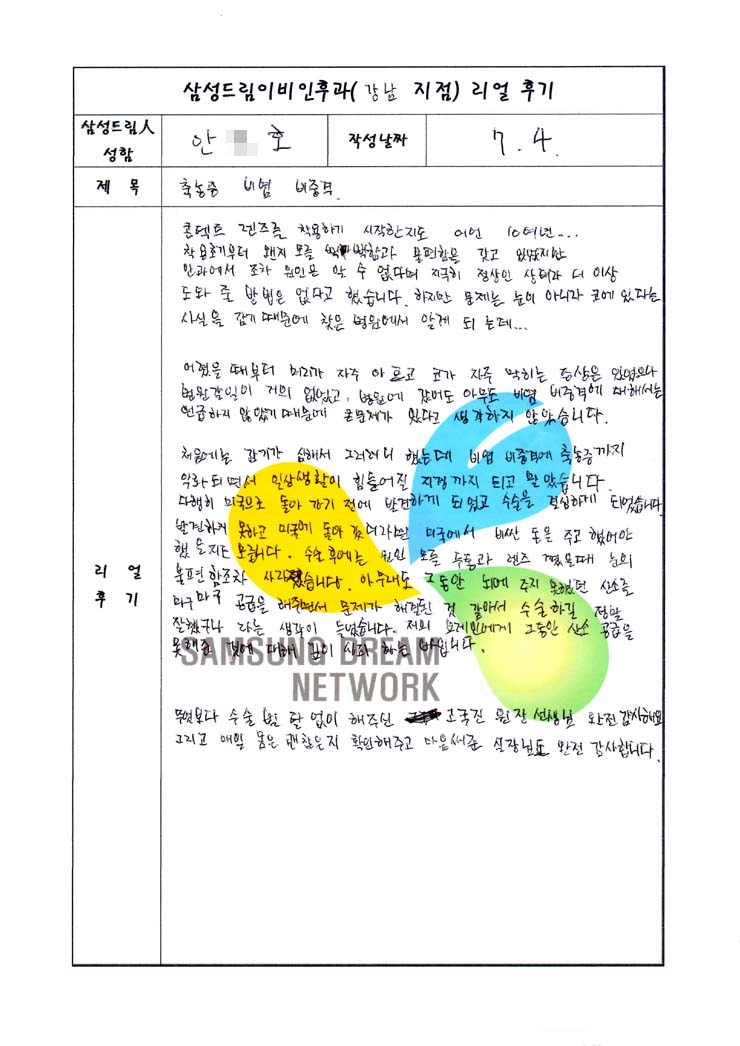 삼성드림이비인후과( 강남 지점) 리얼 후기
삼성드림人 성함
안 호
작성날짜
7. 4.
제 목
축농증 비염 비중격
리 얼 후 기
콘텍트 렌즈를 착용하기 시작한지도 어언 10여년...
착용초기부터 왠지 모를 박함과 불편함을 갖고 있었지만
안과에서 조차 원인은 알 수 없다며 지극히 정상인 상태라 더 이상
도와 줄 방법은 없다고 했습니다. 하지만 문제는 눈이 아니라 코에 있다는
사실을 감기 때문에 찾은 병원에서 알게 되는데...
어렸을 때부터 머리가 자주 아프고 코가 자주 막히는 증상은 있었으나
병원갈일이 거의 없었고, 병원에 갔어도 아무도 비염 비중격에 대해서는
언급하지 않았기 때문에 큰문제가 있다고 생각하지 않았습니다.
처음에는 감기가 심해서 그러려니 했는데 비염 비중격에 축농증까지
악화되면서 일상생활이 힘들어질 지경까지 되고 말았습니다.
다행히 미국으로 돌아 가기 전에 발견하게 되었고 수술을 결심하게 되었습니다
발견하지 못하고 미국에 돌아 갔더라면 미국에서 비싼 돈을 주고 했어야
했을지도 모릅니다. 수술 후에는 원인 모를 두통과 렌즈 꼈을때 눈의
불편함조차 사라졌습니다. 아무래도 그동안 뇌에 주지 못했던 산소를
마구마구 공급을 해주면서 문제가 해결된 것 같아서 수술하길 정말
잘했구나 라는 생각이 드었습니다. 저의 브레인에게 그동안 산소 공급을
못해준 것에 대해 깊이 사죄 하는 바입니다.
SAMSUNG DREAM
NETWORK
무엇보다 수술 빈 탈 없이 해주신 고국진 원장선생님 완전 감사해요
그리고 매일 몸은 괜찮은지 확인해주고 마음써준 실장님도 완전 감사합니다.